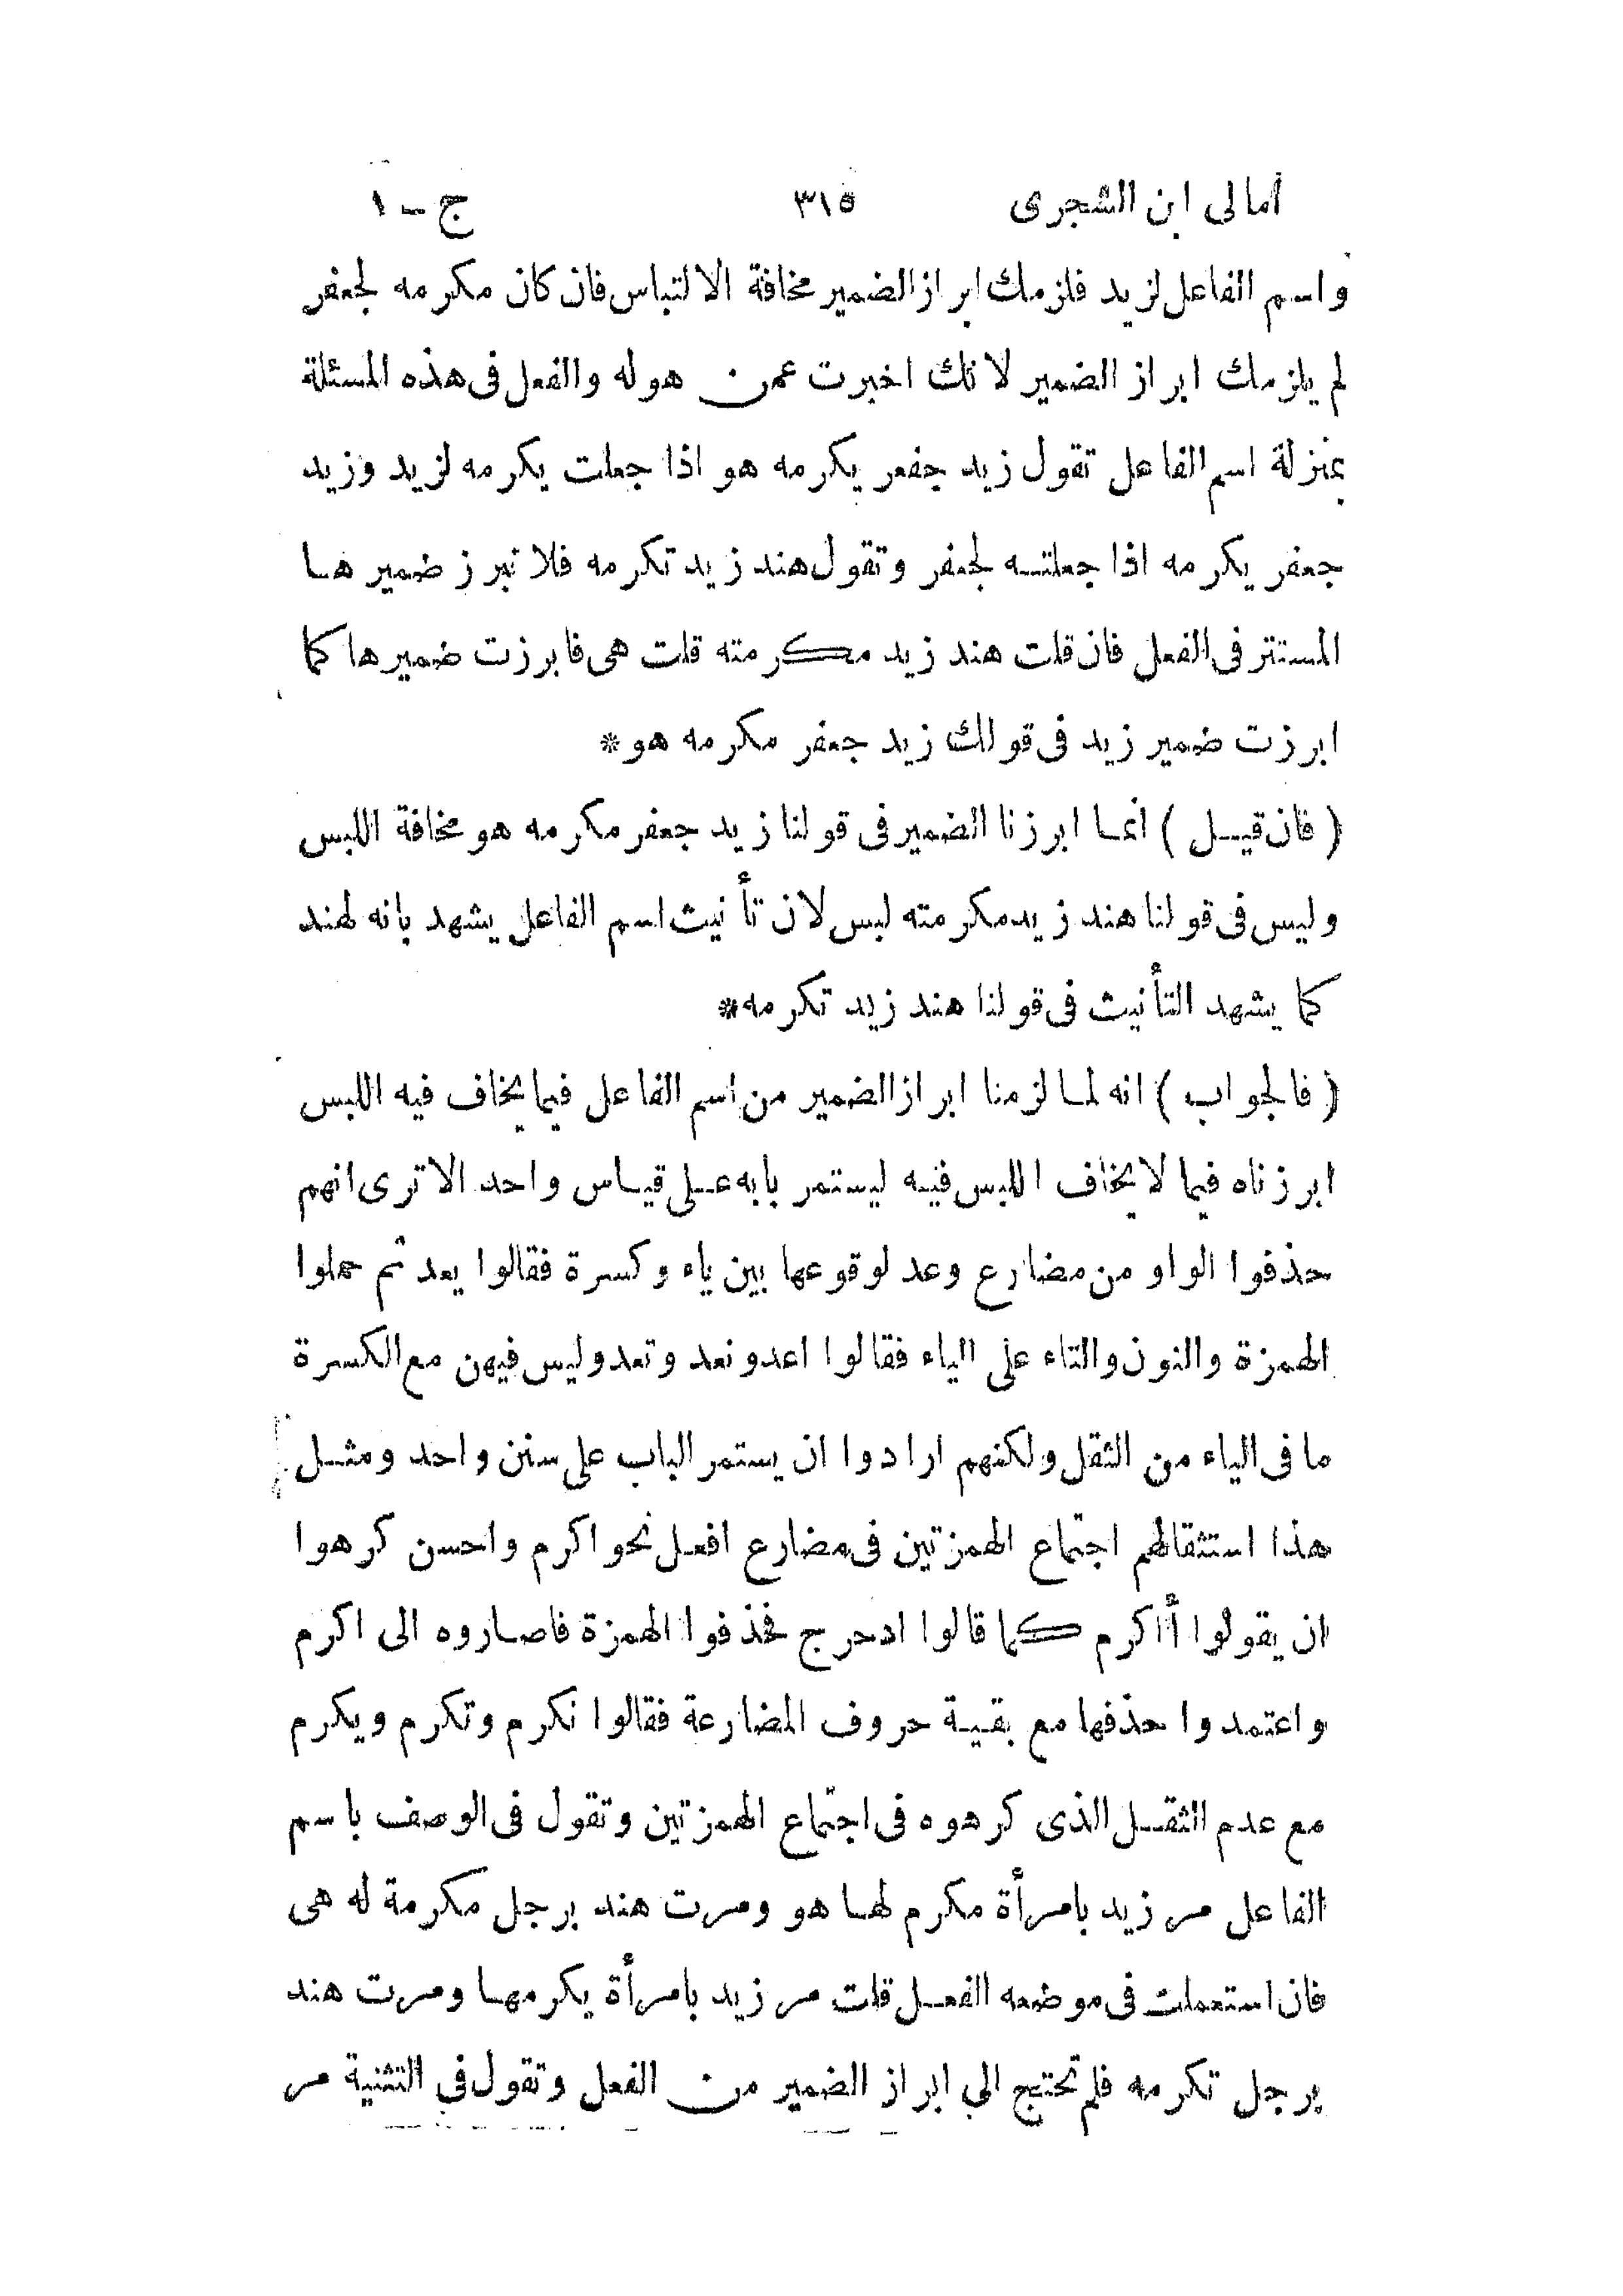 أمالى ابن الشجرى ٣١٥ ج – ١
واسم الفاعل لزيد فلزمك ابراز الضمير مخافة الالتباس فان كان مكرمه لجعفر
لم يلزمك ابراز الضمير لانك اخبرت عمن هوله والفعل فى هذه المسئلة
بمنزلة اسم الفاعل تقول زيد جفعر يكرمه هو اذا جعلت يكرمه لزيد وزيد
جعفر يكرمه اذا جعلته لجعفر وتقول هند زيد تكرمه فلا تبرز ضميرها
المستتر فى الفعل فان قلت هند زيد مكرمته قلت هى فابرزت ضميرها كما
ابرزت ضمير زيد فى قولك زيد جعفر مكرمه هو*
( فان قيل ) انما ابرزنا الضمير فى قولنا زيد جعفر مكرمه هو مخافة اللبس
وليس فى قولنا هند زيد مكرمته لبس لان تأنيث اسم الفاعل يشهد بانه لهند
كما يشهد التأنيث فى قولنا هند زيد تكرمه*
( فالجواب ) انه لما لزمنا ابراز الضمير من اسم الفاعل فيما يخاف فيه اللبس
ابرزناه فيما لا يخاف اللبس فيه ليستمر بابه على قياس واحد الا ترى انهم
حذفوا الواو من مضارع وعد لوقوعها بين ياء وكسرة فقالوا يعد ثم حملوا
الهمزة والنون والتاء على الياء فقالوا اعد ونعد وتعد وليس فيهن مع الكسرة
ما فى الياء من الثقل ولكنهم ارادوا ان يستمر الباب على سنن واحد ومثل
هذا استثقالهم اجتماع الهمزتين فى مضارع افعل نحو اكرم واحسن كرهوا
ان يقولوا أاكرم كما قالوا ادحرج فحذفوا الهمزة فاصاروه الى اكرم
واعتمدوا حذفها مع بقية حروف المضارعة فقالوا نكرم وتكرم ويكرم
مع عدم الثقل الذى كرهوه فى اجتماع الهمزتين وتقول فى الوصف باسم
الفاعل مر زيد بامرأة مكرم لها هو ومرت هند برجل مكرمة له هى
فان استعملت فى موضعه الفعل قلت مر زيد بامرأة يكرمها ومرت هند
برجل تكرمه فلم تحتج الي ابراز الضمير من الفعل وتقول فى التثنية مر